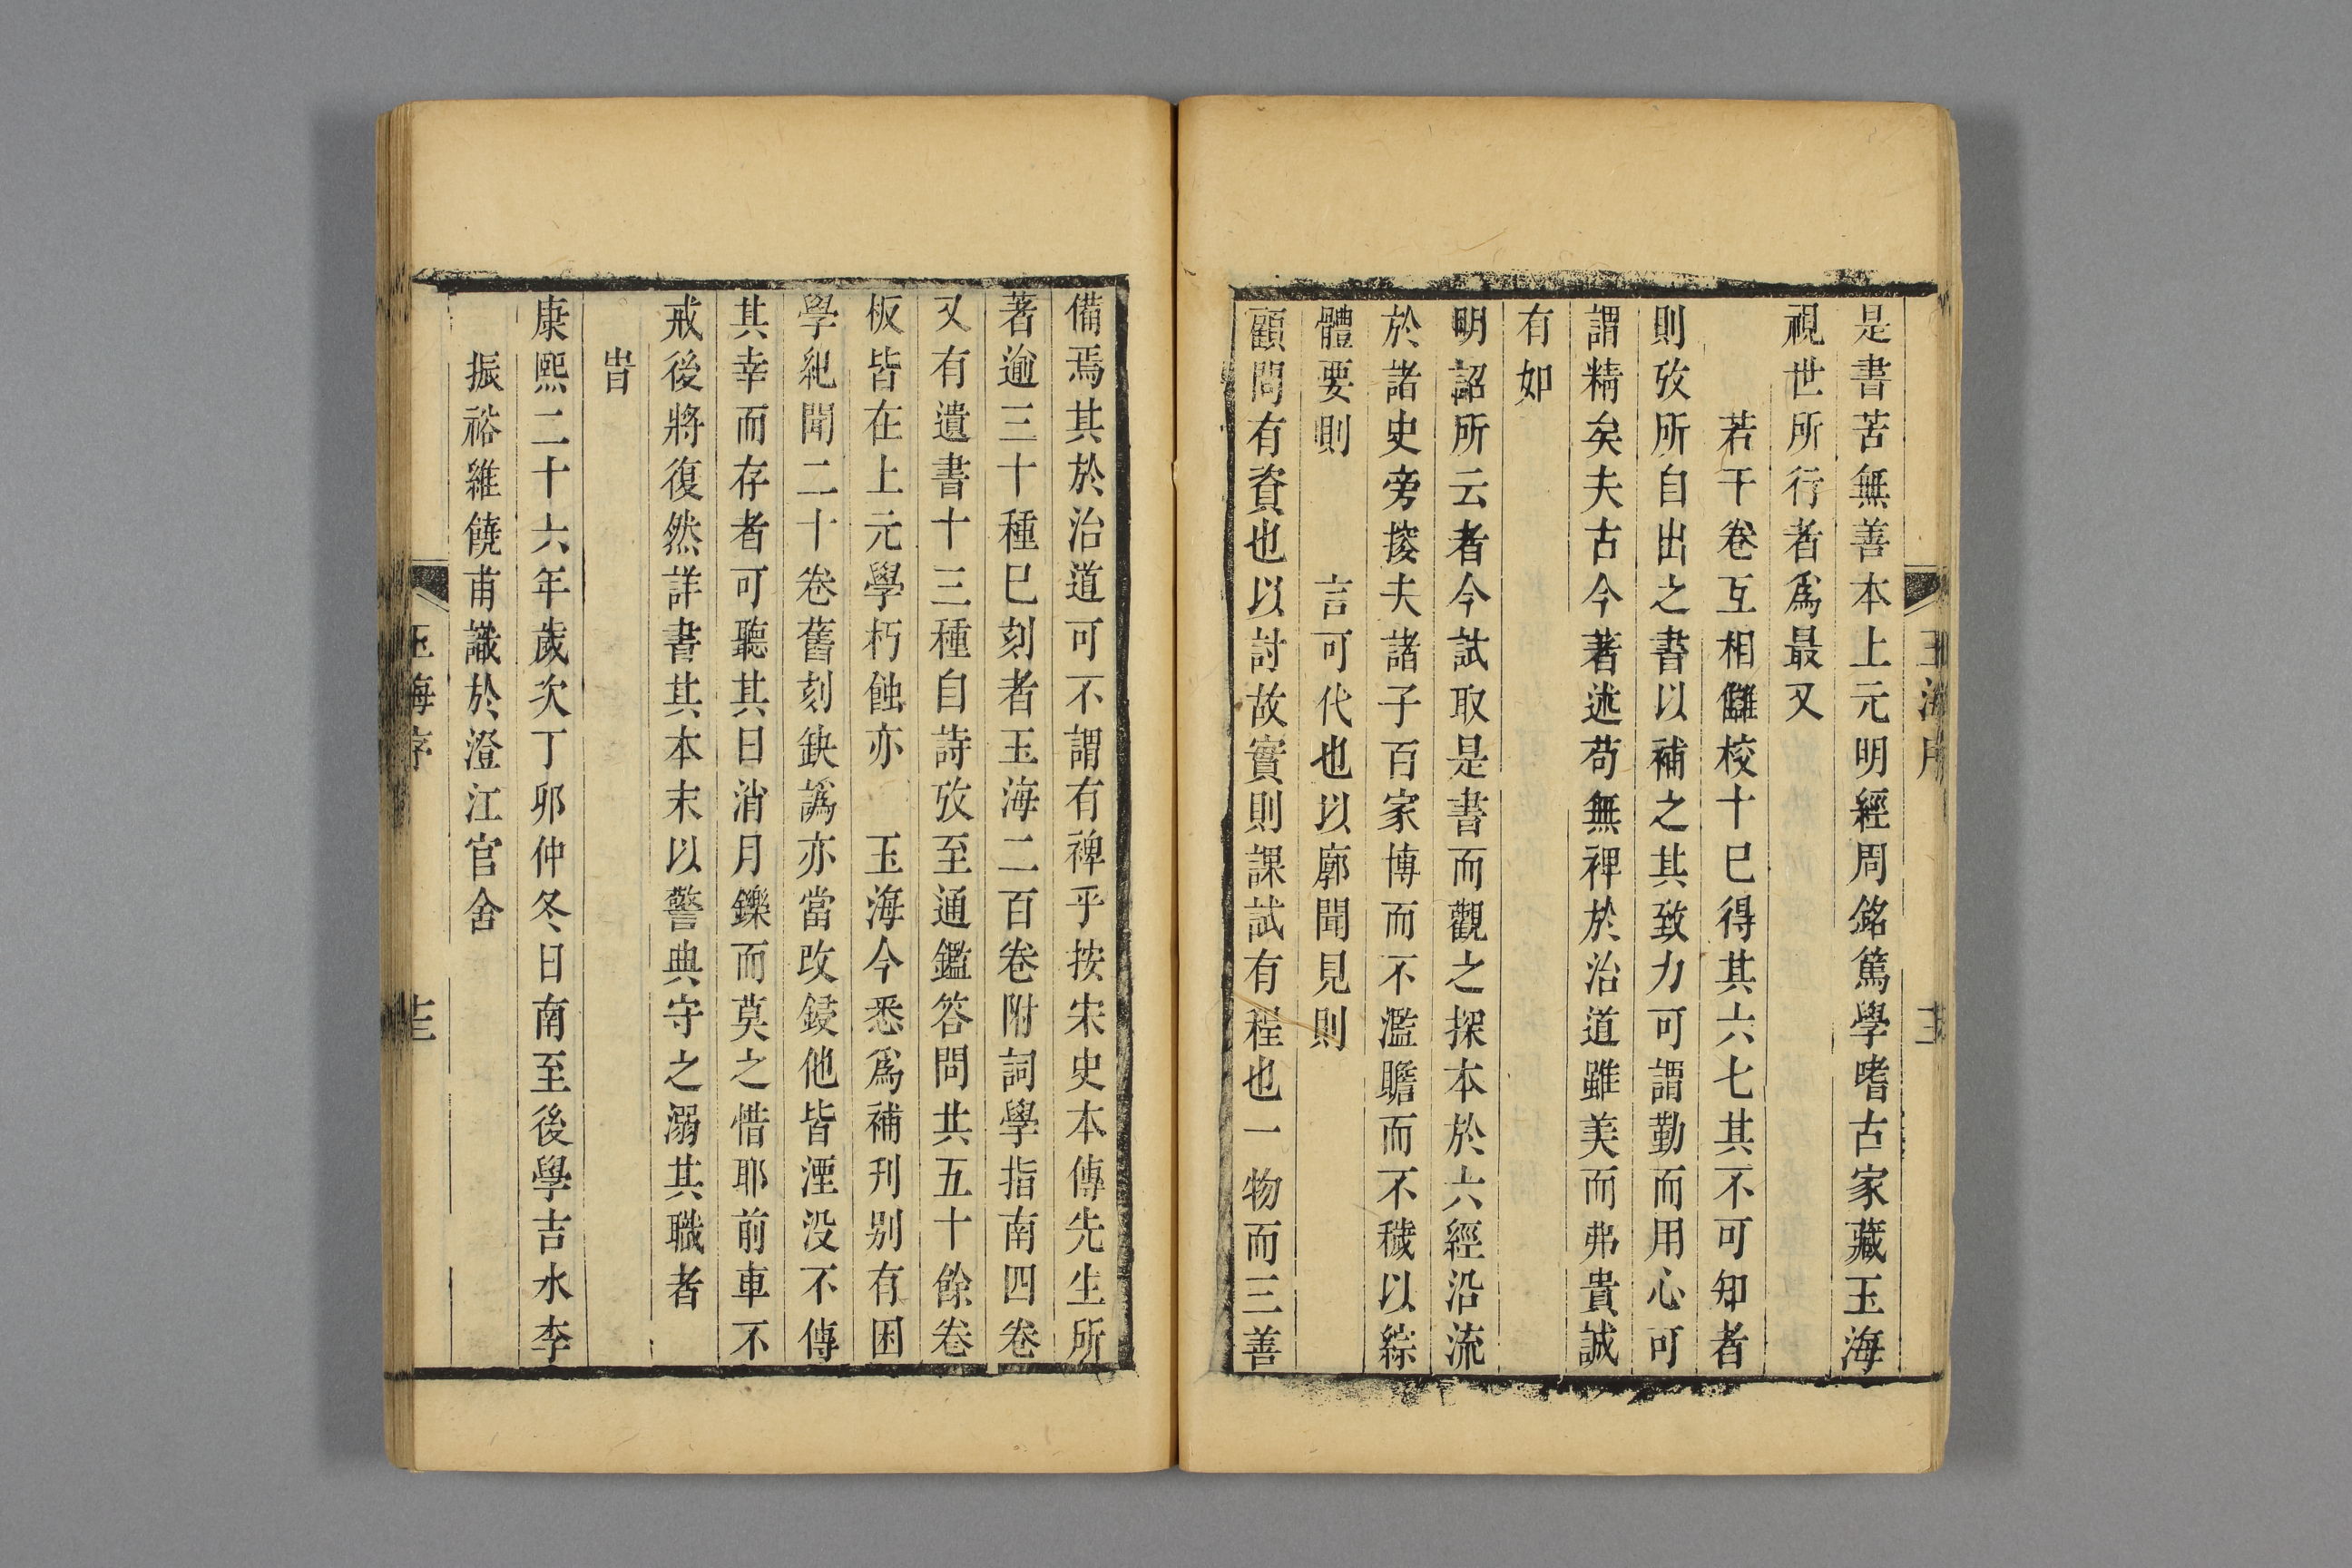 是書苦無善本上元明經周銘篤學嗜古家藏玉海
視世所行者爲最又
若干卷互相讎校十巳得其六七其不可知者
則攷所自出之書以補之其致力可謂勤而用心可
謂精矣夫古今著述苟無裨於治道雖美而弗貴誠
有如
明詔所云者今試取是書而觀之探本於六經沿流
於諸史旁搜夫諸子百家博而不濫贍而不穢以綜
體要則 言可代也以廓聞見則
顧問有資也以討故實則課試有程也一物而三善
備焉其於治道可不謂有裨乎按宋史本傳先生所
著逾三十種巳刻者玉海二百卷附詞學指南四卷
又有遺書十三種自詩攷至通鑑答問共五十餘卷
板皆在上元學朽蝕亦 玉海今悉爲補刊别有困
學紀聞二十卷舊刻缺譌亦當改鋟他皆湮没不傳
其幸而存者可聽其日消月鑠而莫之惜耶前車不
戒後將復然詳書其本末以警典守之溺其職者
旹
康熙二十六年歲次丁卯仲冬日南至後學吉水李
振裕維饒甫識於澄江官舍
玉海序